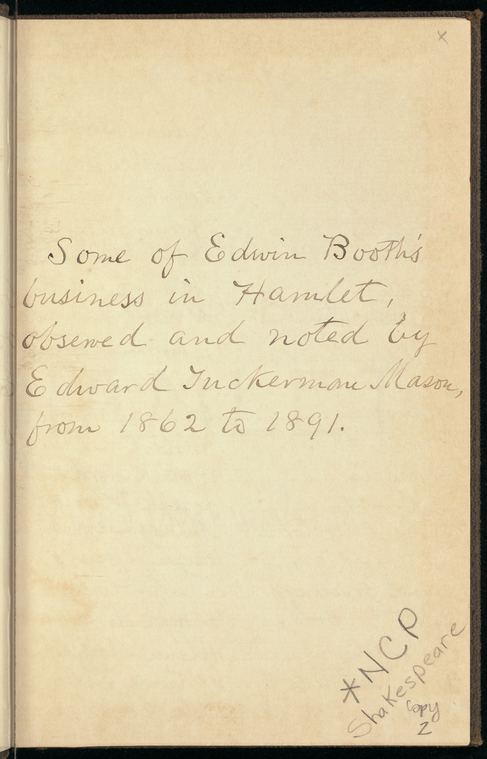 x
Some of Edwin Booth's
business in Hamlet,
observed and noted by
Edward Tuckerman Mason,
from 1862 to 1891.
*NCP
Shakespeare
Copy
2